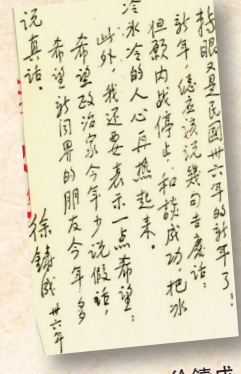 转眼又是民國卅六年的新年了！
新年，總应该说幾句吉慶话：
但願内战停止，和談成功，把冰
冷冰冷的人心再燕起来。
此外，我还要表示一点希望：
希望政治家今年少说假话，
希望新闻界的朋友今年多
说真话。
徐鑄成 卅六年
徐铸成